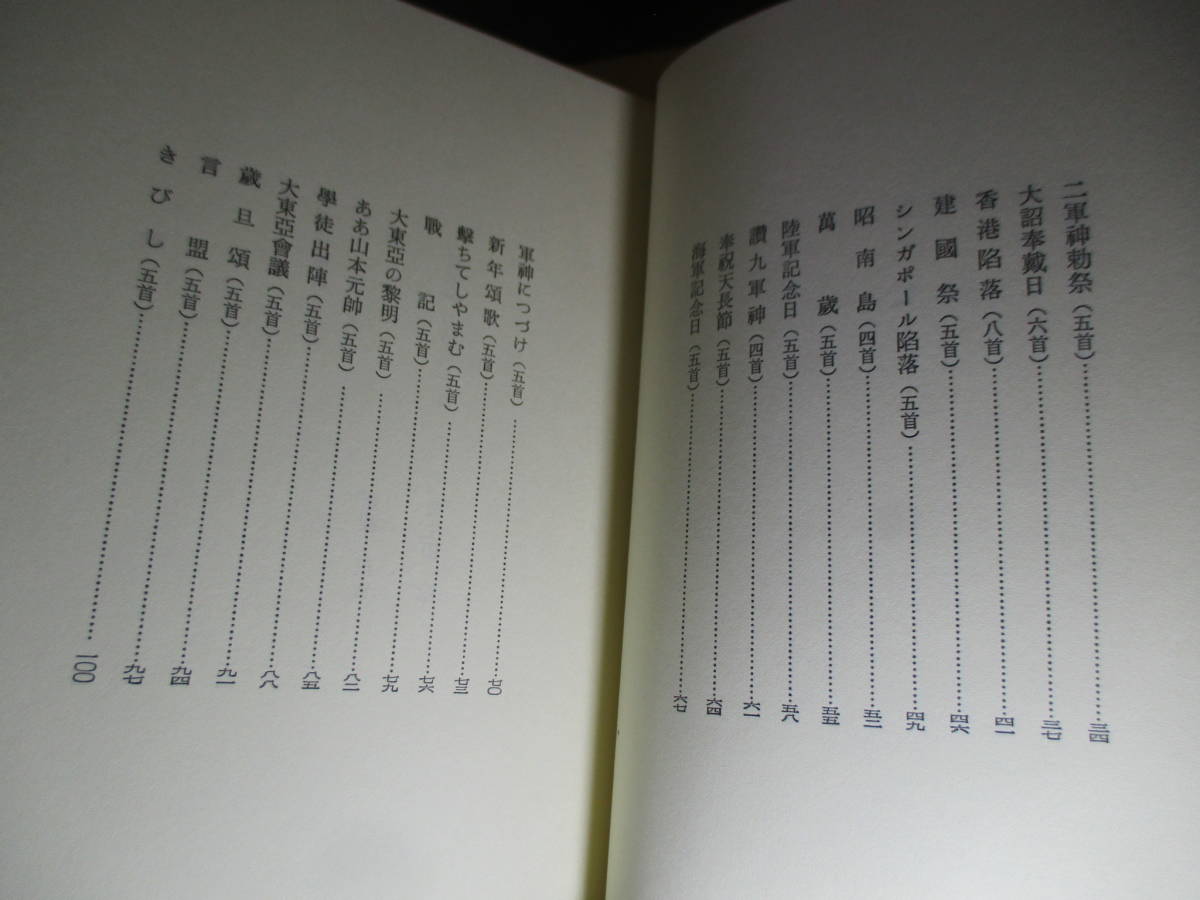 二軍神勅祭(五首)……三四
大詔奉戴日(六首)……三七
香港陷落(八首)……四一
建國祭(五首)……四六
シンガポール陷落(五首)……四九
昭南島(四首)……五二
萬歲(五首)……五五
陸軍記念日(五首)……五八
讚九軍神(四首)……六一
奉祝天長節(五首)……六四
海軍記念日(五首)……六七
軍神につづけ(五首)……七〇
新年頌歌(五首)……七三
擊ちてしやまむ(五首)……七六
戰記(五首)……七九
大東亞の黎明(五首)……八二
ああ山本元帥(五首)……八五
學徒出陣(五首)……八八
大東亞會議(五首)……九一
歲旦頌(五首)……九四
言盟(五首)……九七
きびし(五首)……一〇〇